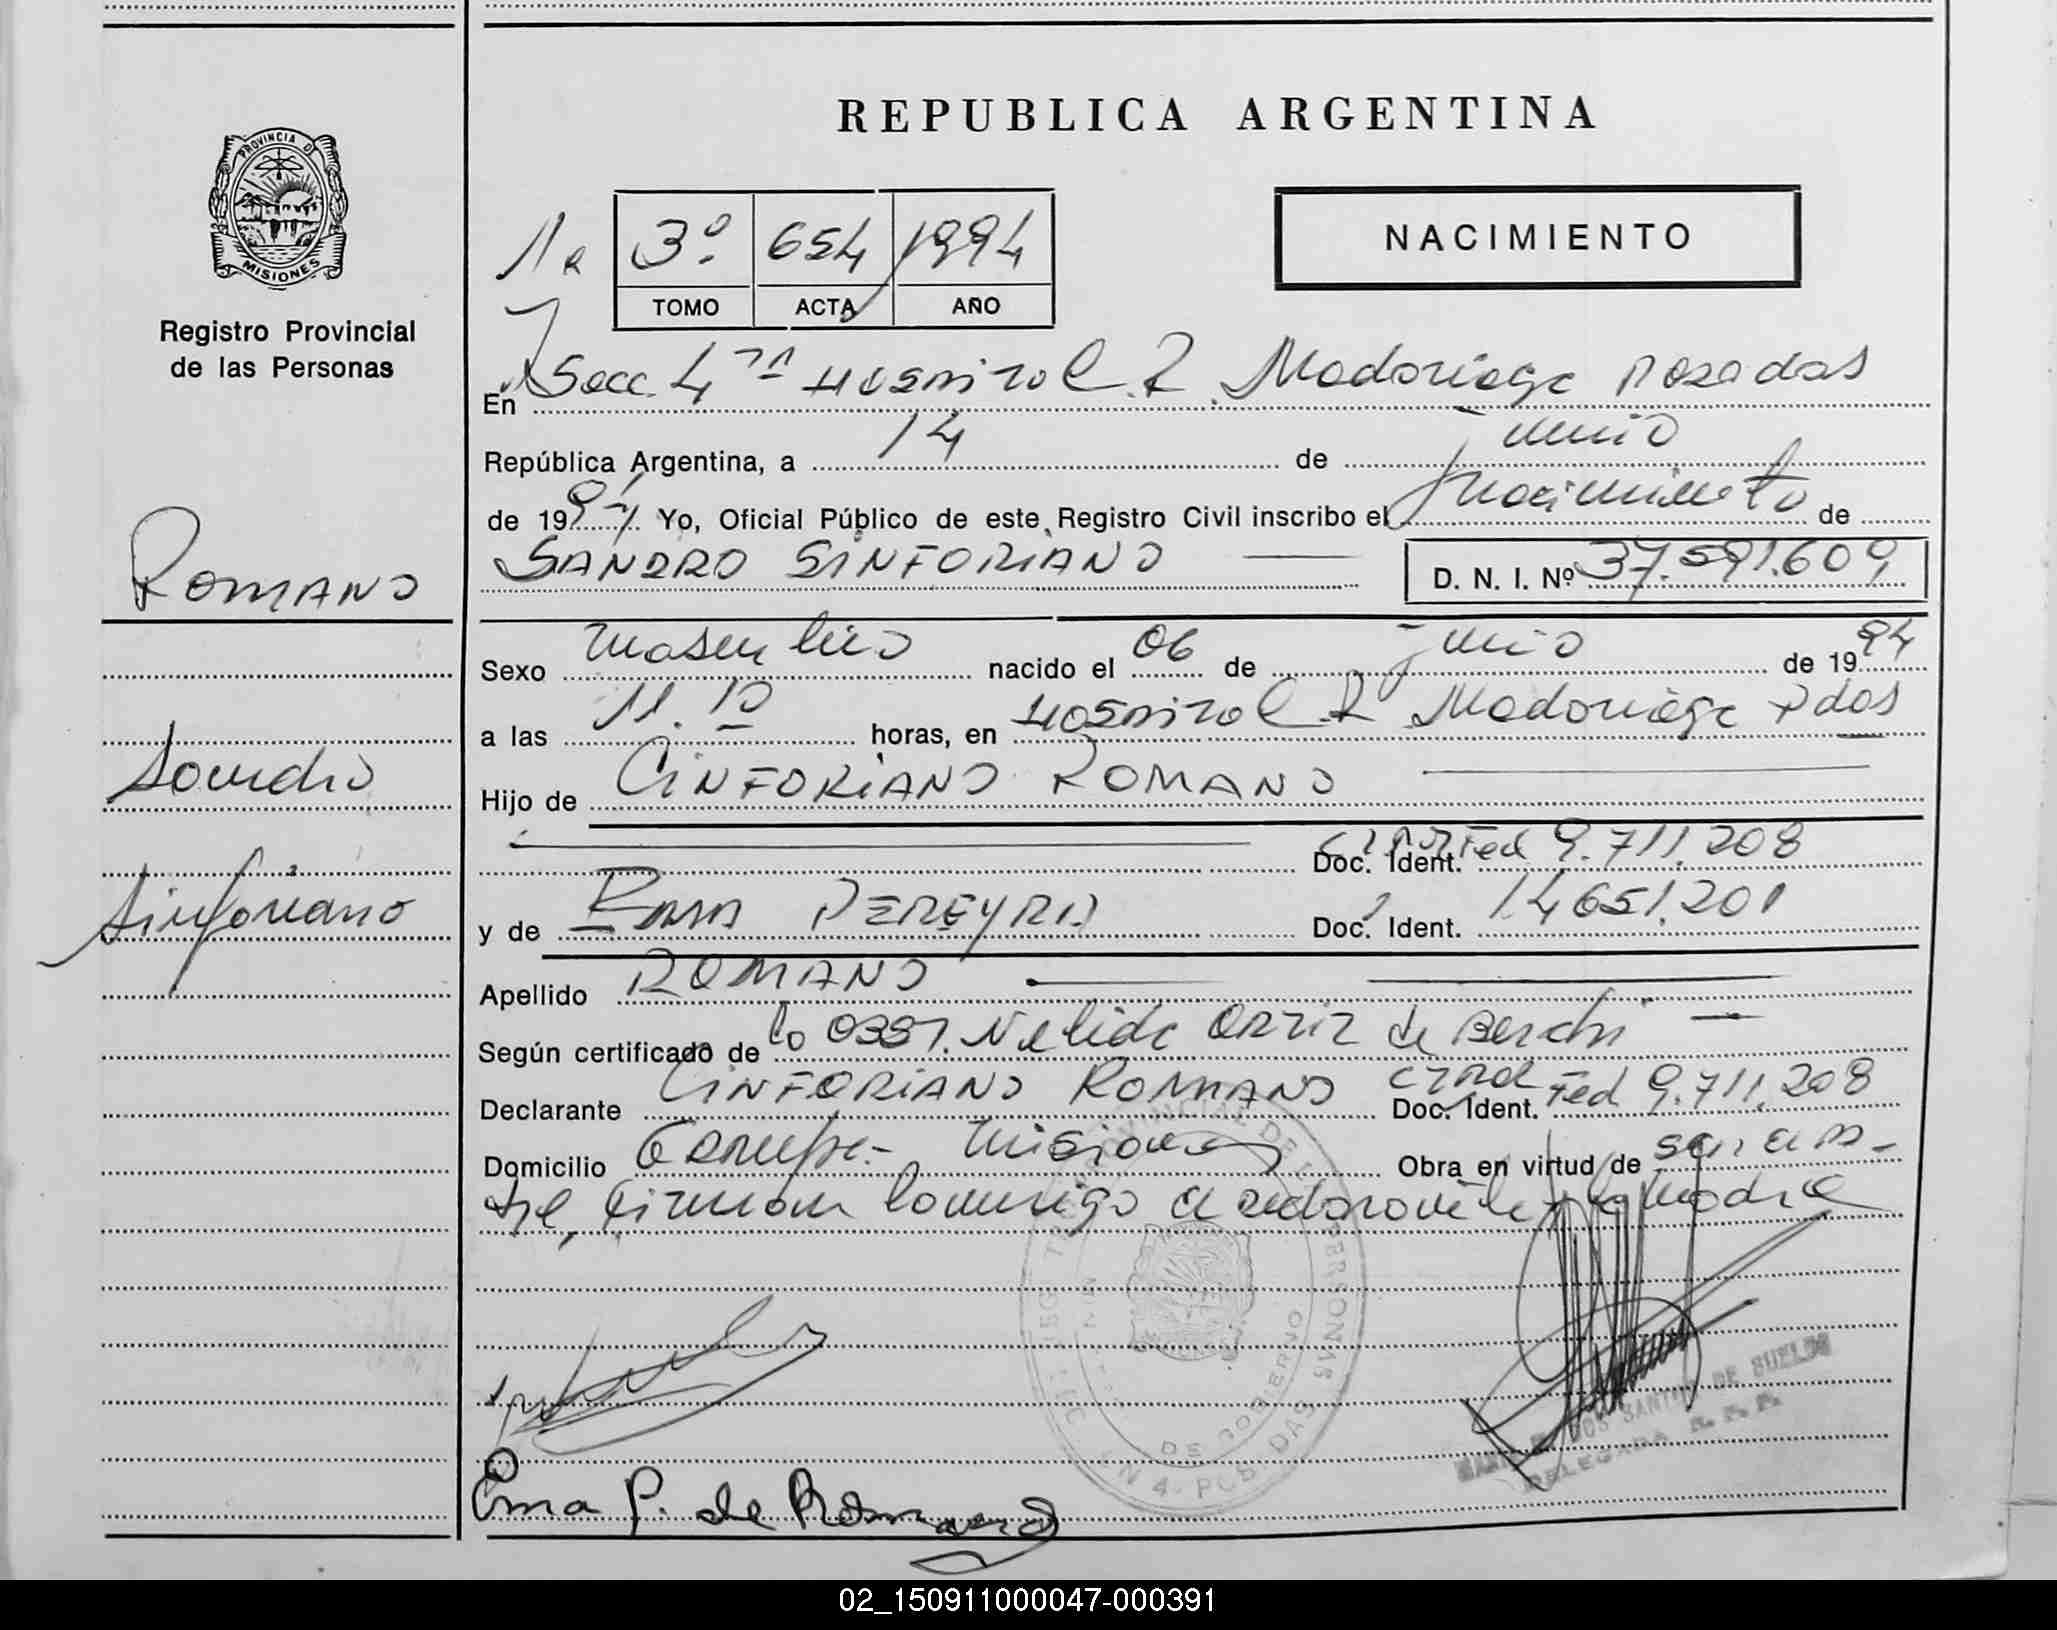 REPUBLICA ARGENTINA
PROVINCIA D
MISIONES
Registro Provincial
de las Personas
NACIMIENTO
3º 654 1994
TOMO ACTA AÑO
En Secc. 4 Hospital R. Madariaga Posadas
República Argentina, a 14 de junio
de 1994 Yo, Oficial Público de este Registro Civil inscribo el nacimiento de
SANDRO SINFORIANO D. N. I. Nº 37.591.609
ROMANO
Sexo masculino nacido el 06 de junio de 1994
a las 11.10 horas, en Hospital R Madariaga Pdas
Sandro
Hijo de CINFORIANO ROMANO
Doc. Ident. Fed 9.711.208
Sinforiano
y de PEREYRA Doc. Ident. 14651.201
Apellido ROMANO
Según certificado de Nelida Ortiz de
Declarante CINFORIANO ROMANO Doc. Ident. Fed 9.711.208
Domicilio Garupa - Misiones Obra en virtud de ser el pa-
dre, firman conmigo el declarante y la madre
REG PROVINCIAL DE LAS PERSONAS
DE GOBIERNO
POSADAS
DOS SANTOS DE SUELDO
DELEGADA R. P. P.
Ema P. de Romano
02_150911000047-000391